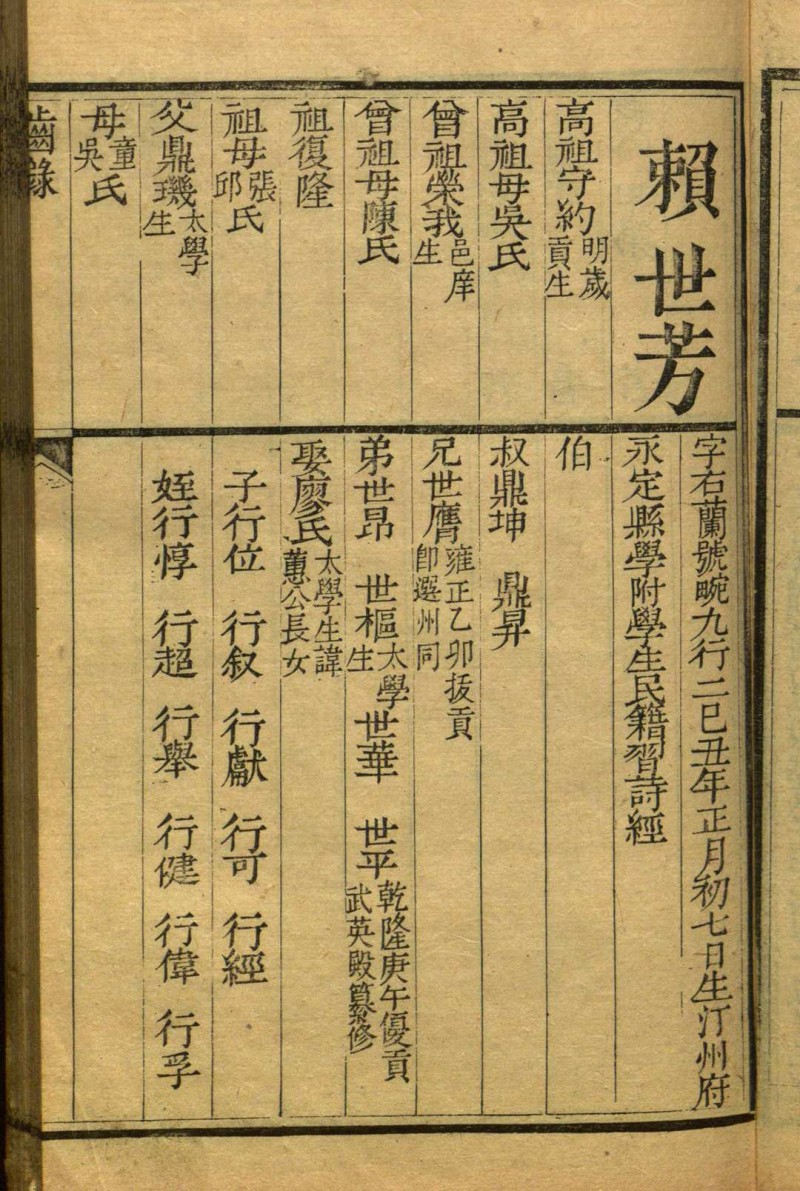 賴世芳
高祖守約明歲貢生
高祖母吳氏
曾祖榮我邑庠生
曾祖母陳氏
祖復隆
祖母張邱氏
父鼎璣太學生
母童吳氏
字右蘭號畹九行二己丑年正月初七日生汀州府
永定縣學附學生民籍習詩經
伯
叔鼎坤 鼎昇
兄世膺雍正乙卯拔貢即選州同
弟世昂 世樞太學生 世華 世平乾隆庚午優貢武英殿纂修
娶廖氏太學生諱蕙公長女
子行位 行敘 行獻 行可 行經
姪行惇 行超 行舉 行健 行偉 行孚
齒錄